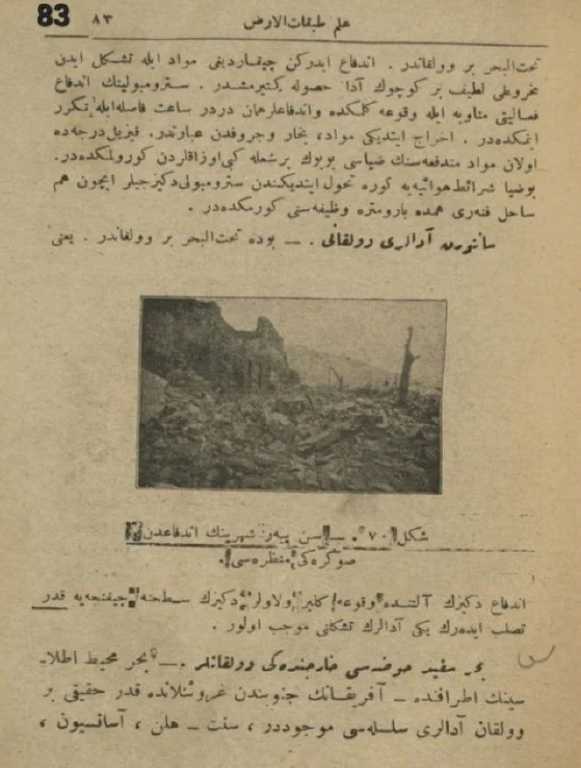 83 ٨٣ علم طبقات‌الارض
تحت‌البحر بر وولقاندر . اندفاع ایدركن چیقاردیغی مواد ایله تشكل ایدن
مخروطی لطیف بر كوچوك آدا حصوله كتیرمشدر . سترومبولینك اندفاع
فعالیتی متناوبه ایله وقوعه كلمكده واندفاعلرهمان دردر ساعت فاصله‌ایله تكرر
ایتمكده‌در . اخراج ایتدیكی مواد، بخار وجروفدن عبارتدر. قیزیل‌درجه‌ده
اولان مواد مندفعه‌سنك ضیاسی بویوك برشعله كبی‌اوزاقلردن كورولمكده‌در.
بوضیا شرائط‌هوائیه‌یه كوره تحول‌ایتدیكندن سترومبولی‌دكیزجیلر ایچون هم
ساحل فنه‌ری همده بارومتره وظیفه‌سنی كورمكده‌در .
سانتورن آدالری وولقانی . — بوده تحت‌البحر بر وولقاندر . یعنی
شكل ٧٠ . سن پیه‌ر شهرینك اندفاعدن
صوكره‌كی منظره‌سی .
اندفاع دكیزك آلتنده وقوعه كلیر ولاولر دكیزك سطحنه چیقنجه‌یه قدر
تصلب ایده‌رك یكی آدالرك تشكلنی موجب اولور .
بحر سفید حوضه‌سی خارجنده‌كی وولقانلر . — بحر محیط اطلا-
سینك اطرافنده — آفریقانك جنوبندن غروئنلانده قدر حقیقی بر
وولقان آدالری سلسله‌سی موجوددر ، سنت — هلن ، آسانسیون ،